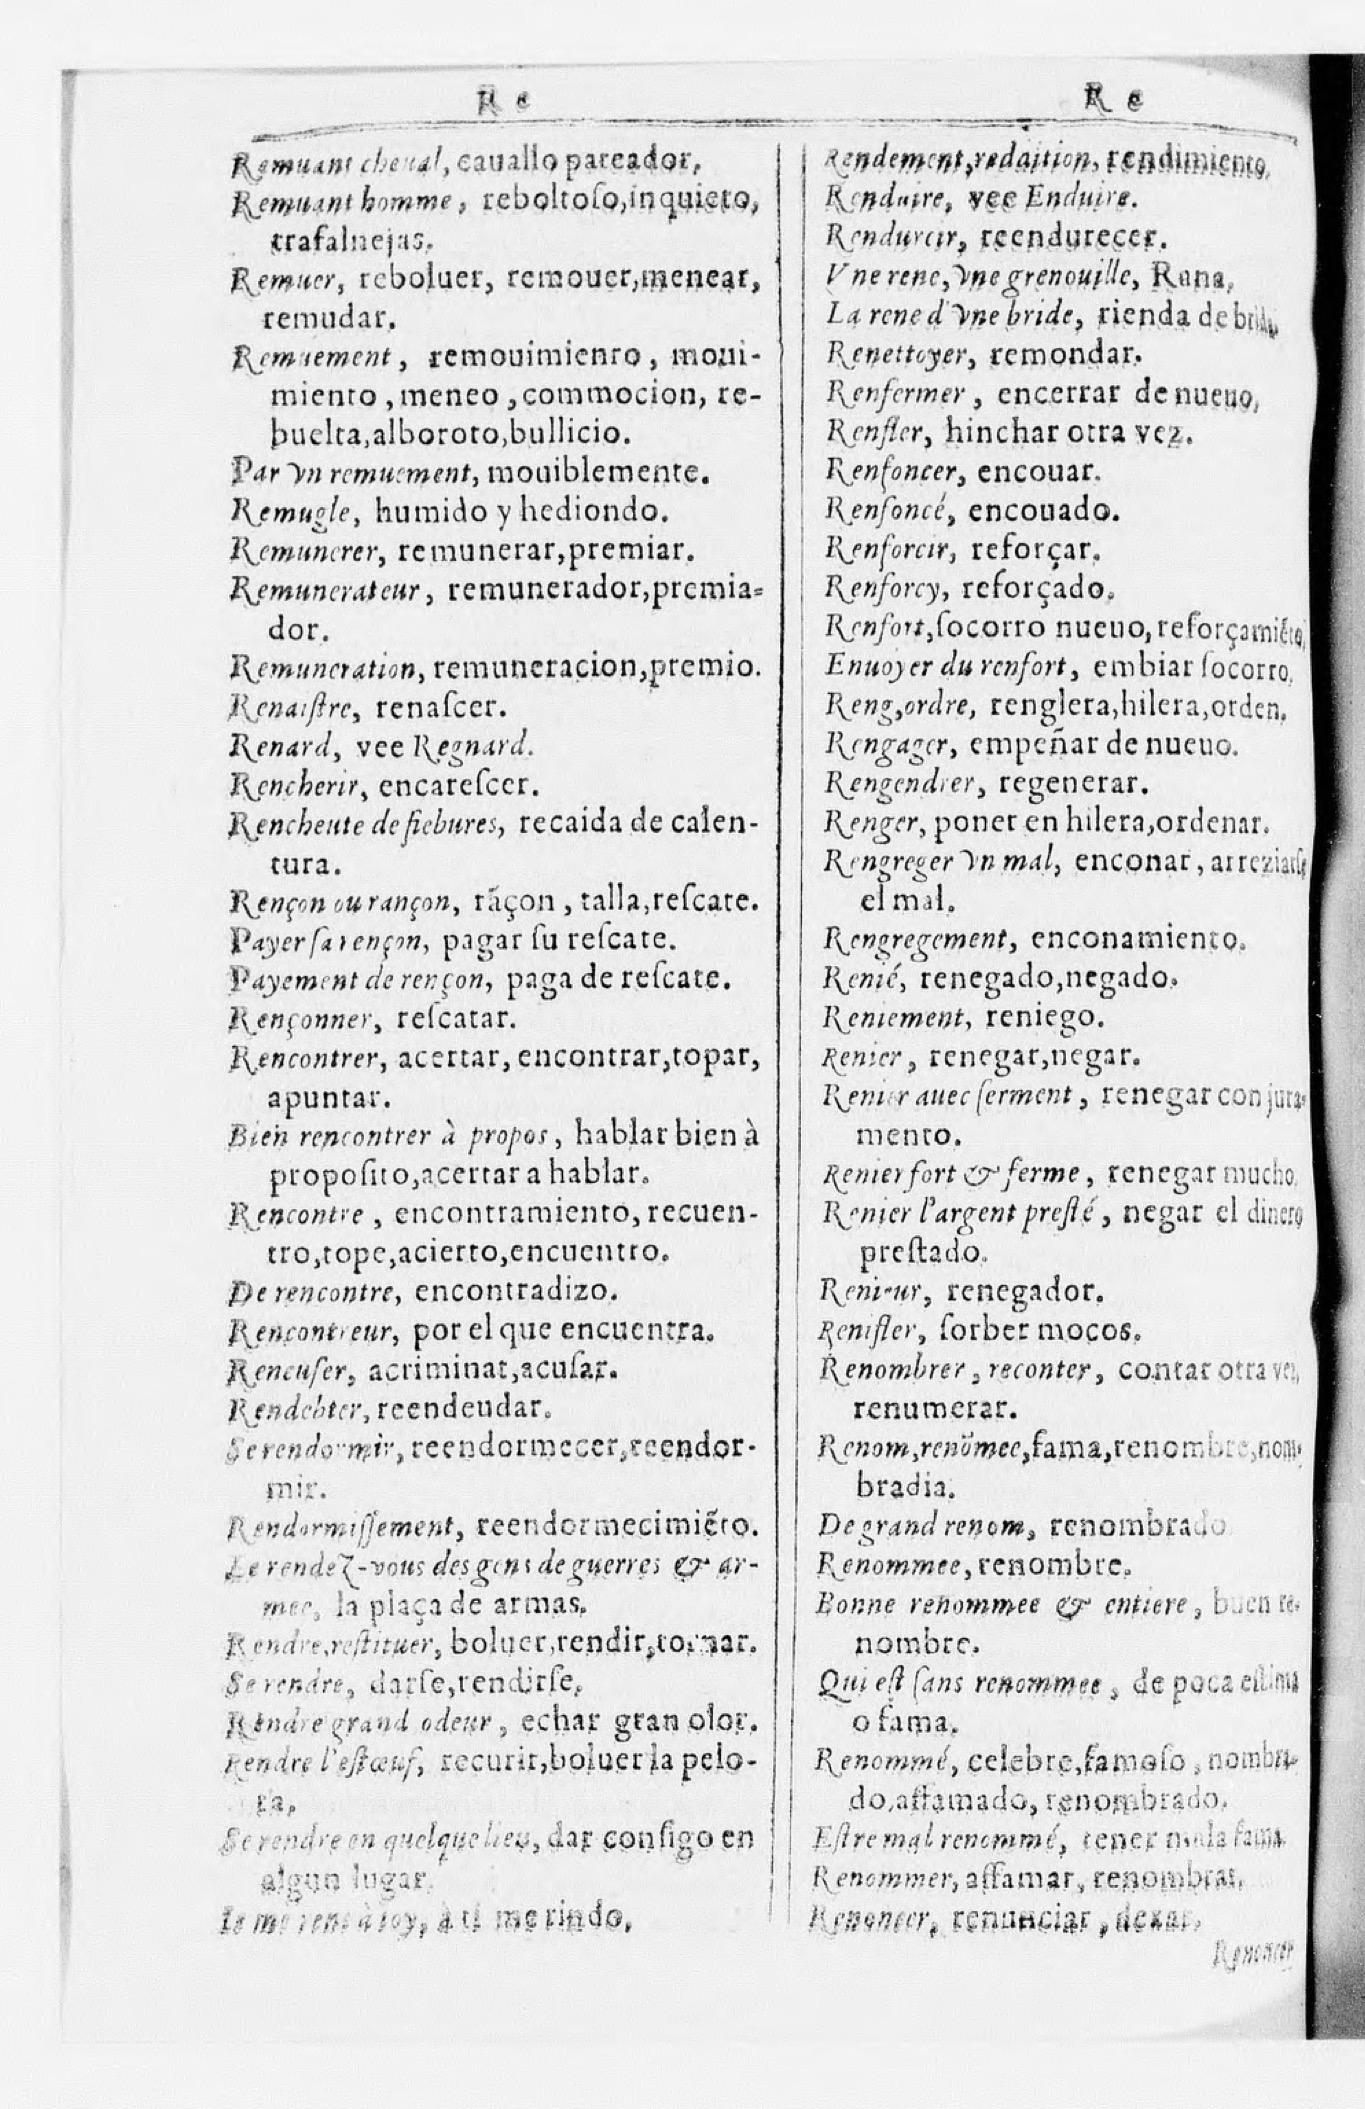 R e
Remuant cheual, cauallo pateador.
Remuant homme, reboltoſo,inquieto,
trafalnejas.
Remuer, reboluer, remouer,menear,
remudar.
Remuement, remouimienro, moui-
miento,meneo,commocion, re-
buelta,alboroto,bullicio.
Par vn remuement, mouiblemente.
Remugle, humido y hediondo.
Remunerer, remunerar,premiar.
Remunerateur, remunerador,premia-
dor.
Remuneration, remuneracion,premio.
Renaiſtre, renaſcer.
Renard, vee Regnard.
Rencherir, encareſcer.
Rencheute de fiebures, recaida de calen-
tura.
Rençon ou rançon, rãçon, talla,reſcate.
Payer ſa rençon, pagar ſu reſcate.
Payement de rençon, paga de reſcate.
Rençonner, reſcatar.
Rencontrer, acertar,encontrar,topar,
apuntar.
Bien rencontrer à propos, hablar bien à
propoſito,acertar a hablar.
Rencontre, encontramiento,recuen-
tro,tope,acierto,encuentro.
De rencontre, encontradizo.
Rencontreur, por el que encuentra.
Rencuſer, acriminar,acuſar.
Rendebter, reendeudar.
Se rendormir, reendormecer,reendor-
mir.
Rendormiſſement, reendormecimiẽto.
Le rendez-vous des gens de guerres & ar-
mee, la plaça de armas.
Rendre,reſtituer, boluer,rendir,tornar.
Se rendre, darſe,rendirſe.
Rendre grand odeur, echar gran olor.
Rendre l'eſtœuf, recurir,boluer la pelo-
ta.
Se rendre en quelque lieu, dar conſigo en
algun lugar.
Ie me rens à toy, à ti me rindo.
R e
Rendement,reddition, rendimiento.
Renduire, vee Enduire.
Rendurcir, reendurecer.
Vne rene, vne grenouille, Rana.
La rene d'vne bride, rienda de brida.
Renettoyer, remondar.
Renfermer, encerrar de nueuo.
Renfler, hinchar otra vez.
Renfoncer, encouar.
Renfoncé, encouado.
Renforcir, reforçar.
Renforcy, reforçado.
Renfort,ſocorro nueuo,reforçamiẽto.
Enuoyer du renfort, embiar ſocorro.
Reng,ordre, renglera,hilera,orden.
Rengager, empeñar de nueuo.
Rengendrer, regenerar.
Renger, poner en hilera,ordenar.
Rengreger vn mal, enconar, arreziarſe
el mal.
Rengregement, enconamiento.
Renié, renegado,negado.
Reniement, reniego.
Renier, renegar,negar.
Renier auec ſerment, renegar con jura-
mento.
Renier fort & ferme, renegar mucho.
Renier l'argent preſté, negar el dinero
preſtado.
Renieur, renegador.
Renifler, ſorber mocos.
Renombrer, reconter, contar otra vez,
renumerar.
Renom,renõmee,fama,renombre,nom-
bradia.
De grand renom, renombrado
Renommee, renombre.
Bonne renommee & entiere, buen re-
nombre.
Qui eſt ſans renommee, de poca eſtima
o fama.
Renommé, celebre,famoſo, nombra-
do,affamado, renombrado.
Eſtre mal renommé, tener mala fama.
Renommer, affamar, renombrar.
Renoncer, renunciar, dexar.
Renoncer